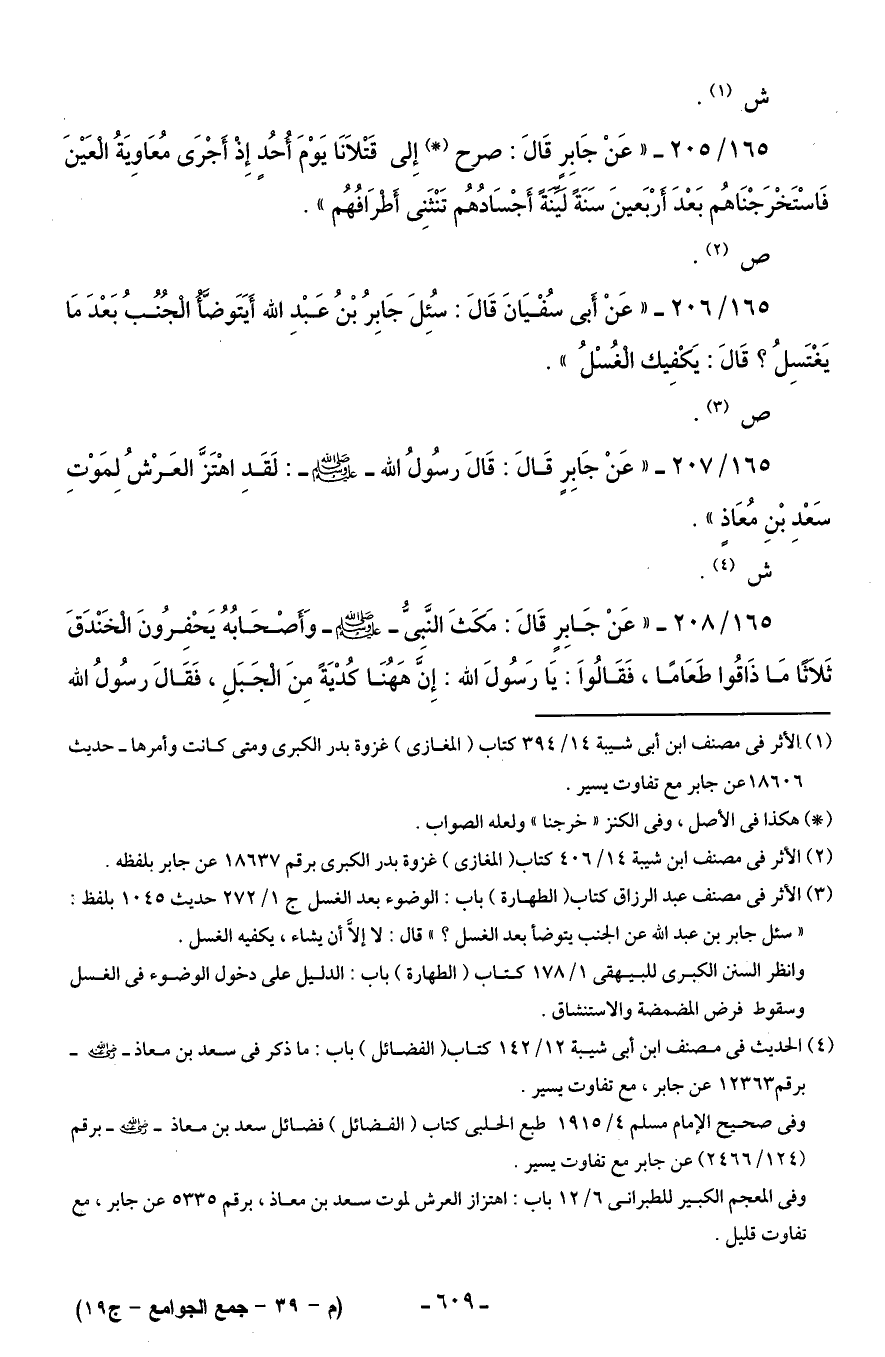 ش (١) .
١٦٥/ ٢٠٥ ـ « عَنْ جَابِرٍ قَالَ : صرح (*) إِلى قَتْلاَنَا يَوْمَ أُحُدٍ إِذْ أَجْرَى مُعَاوِيَةُ الْعَيْنَ
فَاسْتَخْرَجْنَاهُم بَعْدَ أَرْبَعينَ سَنَةً لَيِّنَةً أَجْسَادُهُم تَنْثَنِى أَطْرَافُهُم » .
ص (٢) .
١٦٥/ ٢٠٦ ـ « عَنْ أَبِى سُفْيَانَ قَالَ : سُئِلَ جَابِرُ بْنُ عَبْدِ الله أَيَتَوضَّأُ الْجُنُبُ بَعْدَ مَا
يَغْتَسِلُ ؟ قَالَ : يَكْفِيكَ الْغُسْلُ » .
ص (٣) .
١٦٥/ ٢٠٧ ـ « عَنْ جَابِرٍ قَالَ : قَالَ رسُولُ الله ـ ﷺ ـ : لَقَدِ اهْتَزَّ العَرْشُ لِمَوْتِ
سَعْدِ بْنِ مُعَاذٍ » .
ش (٤) .
١٦٥/ ٢٠٨ ـ « عَنْ جَابِرٍ قَالَ : مَكَثَ النَّبِىُّ ـ ﷺ ـ وَأَصْحَابُهُ يَحْفِرُونَ الْخَنْدَقَ
ثَلاَثًا مَا ذَاقُوا طَعَامًا ، فَقَالُواَ : يَا رَسُولَ الله : إِنَّ هَهُنَا كُدْيَةً مِنَ الْجَبَلِ ، فَقَالَ رسُولُ الله
(١) الأثر فى مصنف ابن أبى شيبة ١٤/ ٣٩٤ كتاب ( المغازى ) غزوة بدر الكبرى ومتى كانت وأمرها ـ حديث
١٨٦٠٦ عن جابر مع تفاوت يسير .
(*) هكذا فى الأصل ، وفى الكنز « خرجنا » ولعله الصواب .
(٢) الأثر فى مصنف ابن شيبة ١٤/ ٤٠٦ كتاب( المغازى ) غزوة بدر الكبرى برقم ١٨٦٣٧ عن جابر بلفظه .
(٣) الأثر فى مصنف عبد الرزاق كتاب( الطهارة ) باب : الوضوء بعد الغسل ج ١/ ٢٧٢ حديث ١٠٤٥ بلفظ :
« سئل جابر بن عبد الله عن الجنب يتوضأ بعد الغسل ؟ » قال : لا إلاَّ أن يشاء ، يكفيه الغسل .
وانظر السنن الكبرى للبيهقى ١/ ١٧٨ كتاب ( الطهارة ) باب : الدليل على دخول الوضوء فى الغسل
وسقوط فرض المضمضة والاستنشاق .
(٤) الحديث فى مصنف ابن أبى شيبة ١٢/ ١٤٢ كتاب( الفضائل ) باب : ما ذكر فى سعد بن معاذ ـ رضي الله عنه ـ
برقم ١٢٣٦٣ عن جابر ، مع تفاوت يسير .
وفى صحيح الإمام مسلم ٤/ ١٩١٥ طبع الحلبى كتاب ( الفضائل ) فضائل سعد بن معاذ ـ رضي الله عنه ـ برقم
(١٢٤/ ٢٤٦٦) عن جابر مع تفاوت يسير .
وفى المعجم الكبير للطبرانى ٦/ ١٢ باب : اهتزاز العرش لموت سعد بن معاذ ، برقم ٥٣٣٥ عن جابر ، مع
تفاوت قليل .
ـ ٦٠٩ ـ (م - ٣٩ - جمع الجوامع - ج١٩)